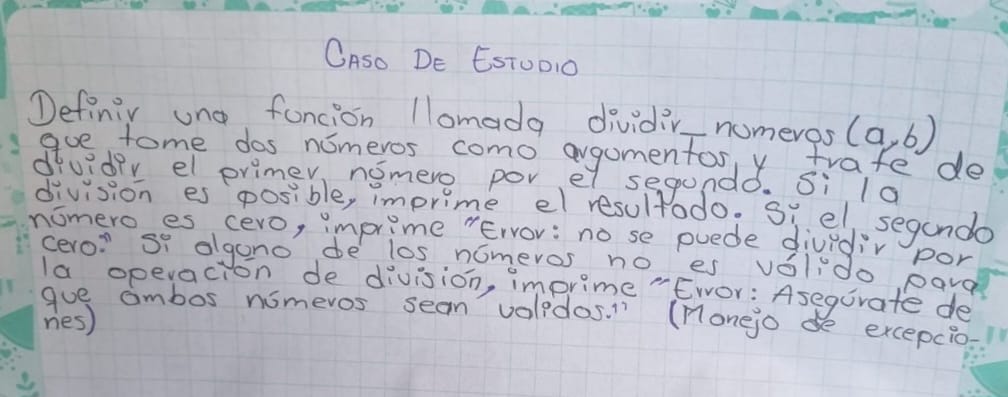 CASO DE ESTUDIO
Definir una función llamada dividir_numeros (a,b)
que tome dos números como argumentos, y trate de
dividir el primer número por el segundo. Si la
división es posible, imprime el resultado. Si el segundo
número es cero, imprime "Error: no se puede dividir por
cero." Si alguno de los números no es válido para
la operación de división, imprime "Error: Asegúrate de
que ambos números sean validos." (Manejo de excepcio-
nes)